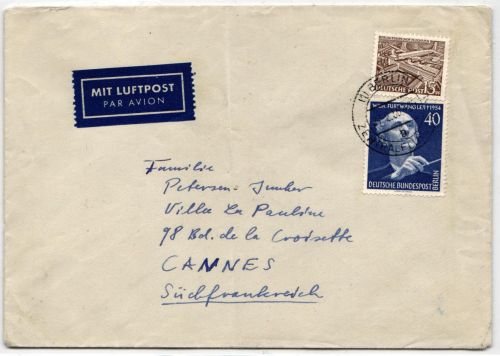 MIT LUFTPOST
PAR AVION
DEUTSCHE POST
15
BERLIN
WILH. FURTWÄNGLER † 1954
40
DEUTSCHE BUNDESPOST
BERLIN
Familie
Petersen-Junker
Villa La Pauline
98 Bd. de la Croisette
CANNES
Südfrankreich